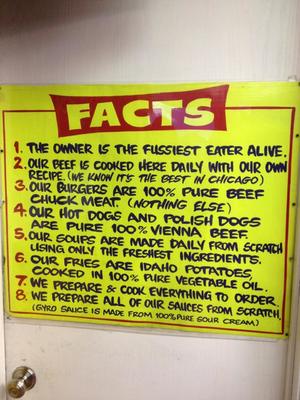 FACTS
1. THE OWNER IS THE FUSSIEST EATER ALIVE.
2. OUR BEEF IS COOKED HERE DAILY WITH OUR OWN
RECIPE. (WE KNOW IT'S THE BEST IN CHICAGO)
3. OUR BURGERS ARE 100% PURE BEEF
CHUCK MEAT. (NOTHING ELSE)
4. OUR HOT DOGS AND POLISH DOGS
ARE PURE 100% VIENNA BEEF.
5. OUR SOUPS ARE MADE DAILY FROM SCRATCH
USING ONLY THE FRESHEST INGREDIENTS.
6. OUR FRIES ARE IDAHO POTATOES,
COOKED IN 100% PURE VEGETABLE OIL.
7. WE PREPARE & COOK EVERYTHING TO ORDER.
8. WE PREPARE ALL OF OUR SAUCES FROM SCRATCH.
(GYRO SAUCE IS MADE FROM 100% PURE SOUR CREAM)